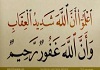 ٱعْلَمُوٓا۟ أَنَّ ٱللَّهَ شَدِيدُ ٱلْعِقَابِ
وَأَنَّ ٱللَّهَ غَفُورٌ رَّحِيمٌ